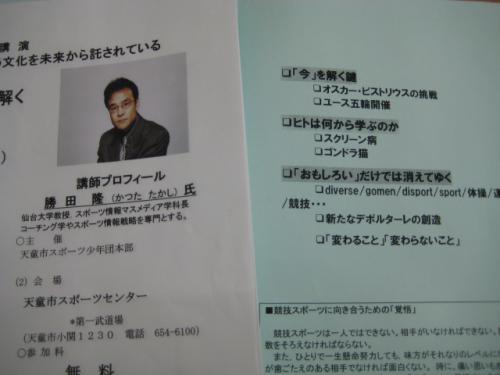 講 演
文化を未来から託されている
解く
講師プロフィール
勝田 隆 (かつた たかし) 氏
仙台大学教授、スポーツ情報マスメディア学科長
コーチング学やスポーツ情報戦略を専門とする。
○主 催
天童市スポーツ少年団本部
(2) 会 場
天童市スポーツセンター
*第一武道場
(天童市小関1230 電話 654-6100)
○参 加 料
無 料
❑「今」を解く鍵
❑オスカー・ピストリウスの挑戦
❑ユース五輪開催
❑ヒトは何から学ぶのか
❑スクリーン病
❑ゴンドラ猫
❑「おもしろい」だけでは消えてゆく
❑diverse/gomen/disport/sport/体操/運
/競技・・・
❑新たなデポルターレの創造
❑「変わること」「変わらないこと」
■競技スポーツに向き合うための「覚悟」
競技スポーツは一人ではできない。相手がいなければできない。
数をそろえなければならない。
また、ひとりで一生懸命努力しても、味方がそれなりのレベルに
が歯ごたえのある相手でなければ面白くない。時に、痛い思いも